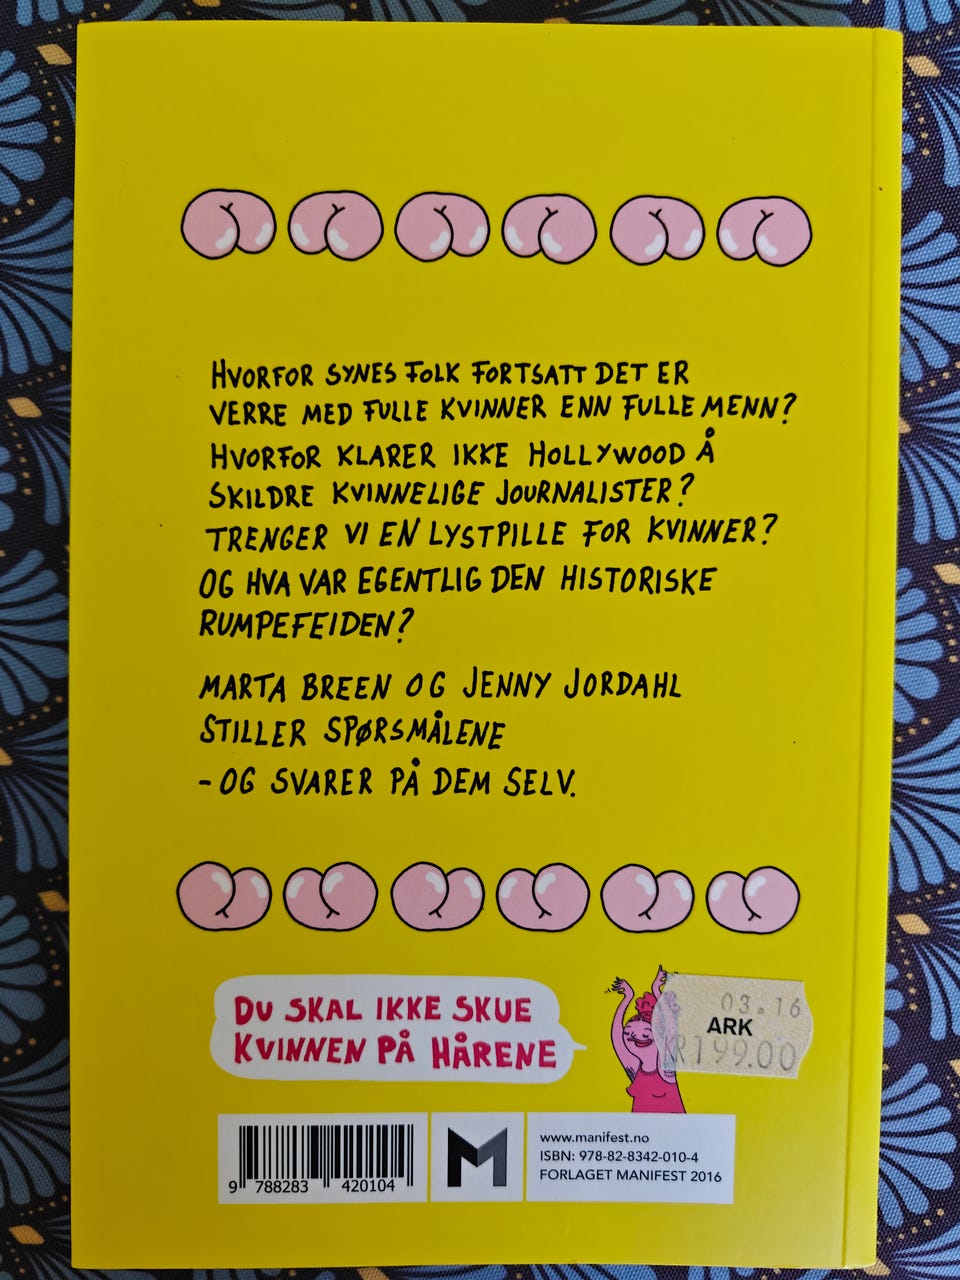 HVORFOR SYNES FOLK FORTSATT DET ER
VERRE MED FULLE KVINNER ENN FULLE MENN?
HVORFOR KLARER IKKE HOLLYWOOD Å
SKILDRE KVINNELIGE JOURNALISTER?
TRENGER VI EN LYSTPILLE FOR KVINNER?
OG HVA VAR EGENTLIG DEN HISTORISKE
RUMPEFEIDEN?
MARTA BREEN OG JENNY JORDAHL
STILLER SPØRSMÅLENE
- OG SVARER PÅ DEM SELV.
DU SKAL IKKE SKUE
KVINNEN PÅ HÅRENE
03.16
ARK
KR199.00
www.manifest.no
ISBN: 978-82-8342-010-4
FORLAGET MANIFEST 2016
M
9 788283 420104